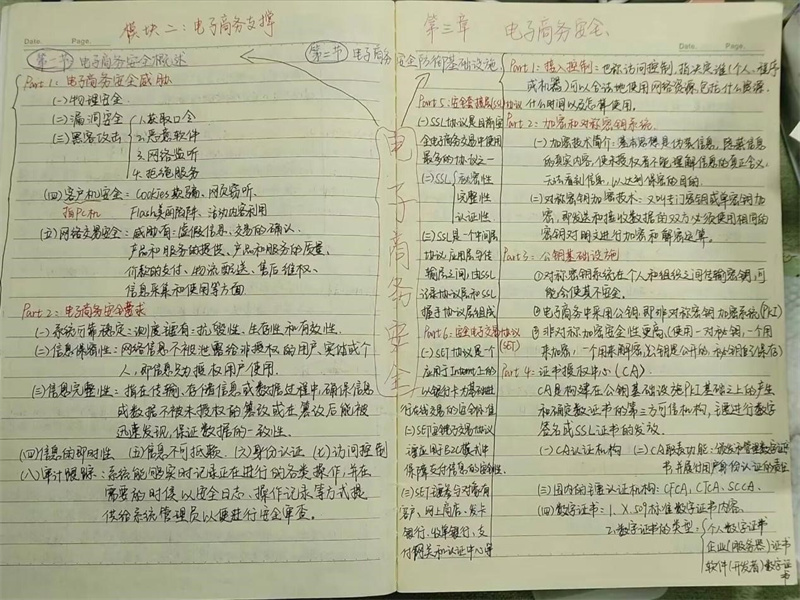 模块二：电子商务支撑
Date.
Page.
第一节 电子商务安全概述
Part 1：电子商务安全威胁
(一)物理安全
(二)漏洞安全
(三)黑客攻击
1.获取口令
2.恶意软件
3.网络监听
4.拒绝服务
(四)客户机安全：Cookies欺骗、网页窃听、
指PC机
Flash类陷阱、活动内容利用
(五)网络交易安全：威胁有：虚假信息、交易的确认、
产品和服务的提供、产品和服务的质量、
价款的支付、物流配送、售后维权、
信息采集和使用等方面
Part 2：电子商务安全需求
(一)系统可靠稳定：测度证有：抗毁性、生存性和有效性。
(二)信息保密性：网络信息不被泄露给非授权的用户、实体或个
人，即信息为授权用户使用。
(三)信息完整性：指在传输、存储信息或数据过程中，确保信息
或数据不被未授权的篡改或在篡改后能被
迅速发现，保证数据的一致性。
(四)信息的即时性 (五)信息不可抵赖 (六)身份认证 (七)访问控制
(八)审计跟踪：系统能够实时记录正在进行的各类操作，并在
需要的时候以安全日志、操作记录等方式提
供给系统管理员以便进行安全审查。
电子商务安全
第三章 电子商务安全
Date.
Page.
第二节 电子商务安全防御基础设施
Part 1：接入控制：也称访问控制，指决定谁(个人、程序
或机器)可以合法地使用网络资源，包括什么资源、
什么时间以及怎样使用。
Part 2：加密和对称密钥系统
(一)加密技术简介：基本思想是伪装信息，隐藏信息
的真实内容，使未授权者不能理解信息的真正含义，
以达到保密的目的。
(二)对称密钥加密技术：又叫专门密钥或单密钥加
密，即发送和接收数据的双方必须使用相同的
密钥对明文进行加密和解密运算。
Part 3：公钥基础设施
①对称密钥系统在个人和组织之间传输密钥，可
能会使其不安全。
②电子商务中采用公钥，即非对称密钥加密系统(PKI)
③非对称加密安全性更高(使用一对秘钥，一个用
来加密，一个用来解密，公钥是公开的，私钥自己保存)
Part 4：证书授权中心(CA)
CA是构建在公钥基础设施PKI基础之上的产生
和确定数字证书的第三方可信机构，主要进行数字
签名或SSL证书的发放。
(一)CA认证机构 (二)CA职表功能：颁发和管理数字证
书并履行用户身份认证的责任
(三)国内的主要认证机构：CFCA、CTCA、SCCA
(四)数字证书：1. X.509标准数字证书内容。
2.数字证书的类型：个人数字证书
企业(服务器)证书
软件(开发者)数字证
书
Part 5：安全套接层(SSL)协议
(一)SSL协议是目前安
全电子商务交易中使用
最多的协议之一
(二)SSL
秘密性
完整性
认证性
(三)SSL是一个中间层
协议，应用层与传
输层之间，由SSL
记录协议层和SSL
握手协议层组成
Part 6：安全电子交易协议
(SET)
(一)SET协议是一个
应用于Internet上的
以银行卡为基础进
行在线交易的安全标准
(二)SET安全电子交易协议
主要应用于B2C模式中
保障支付信息的安全性
(三)SET主要参与对象有
客户、网上商店、发卡
银行、收单银行、支
付网关和认证中心等